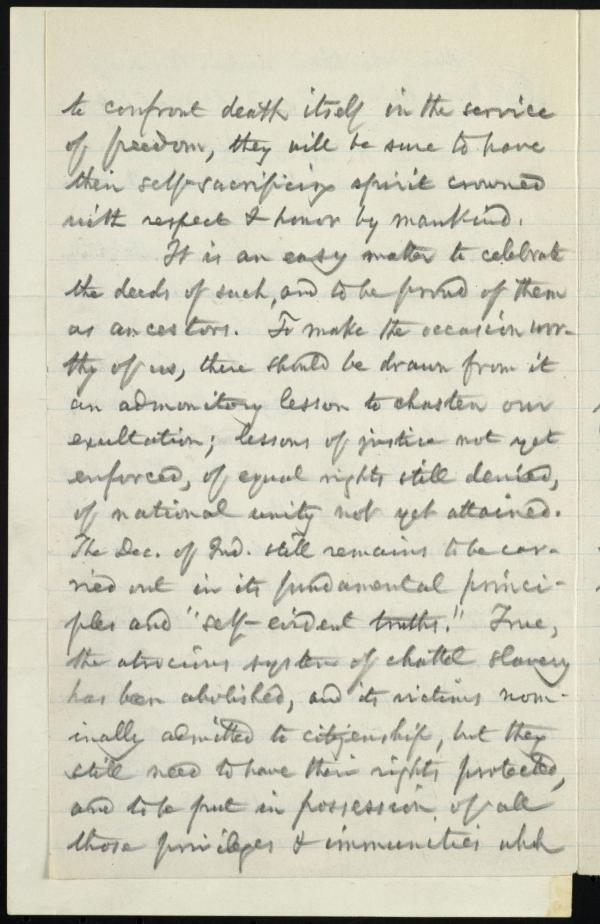 to confront death itself in the service
of freedom, they will be sure to have
their self-sacrificing spirit crowned
with respect & honor by mankind.
It is an easy matter to celebrate
the deeds of such, and to be proud of them
as ancestors. To make the occasion wor-
thy of us, there should be drawn from it
an admonitory lesson to chasten our
exultation; lessons of justice not yet
enforced, of equal rights still denied,
of national unity not yet attained.
The Dec. of Ind. still remains to be car-
ried out in its fundamental princi-
ples and "self-evident truths." True,
the atrocious system of chattel slavery
has been abolished, and its victims nom-
inally admitted to citizenship, but they
still need to have their rights protected,
and to be put in possession of all
those privileges & immunities whch